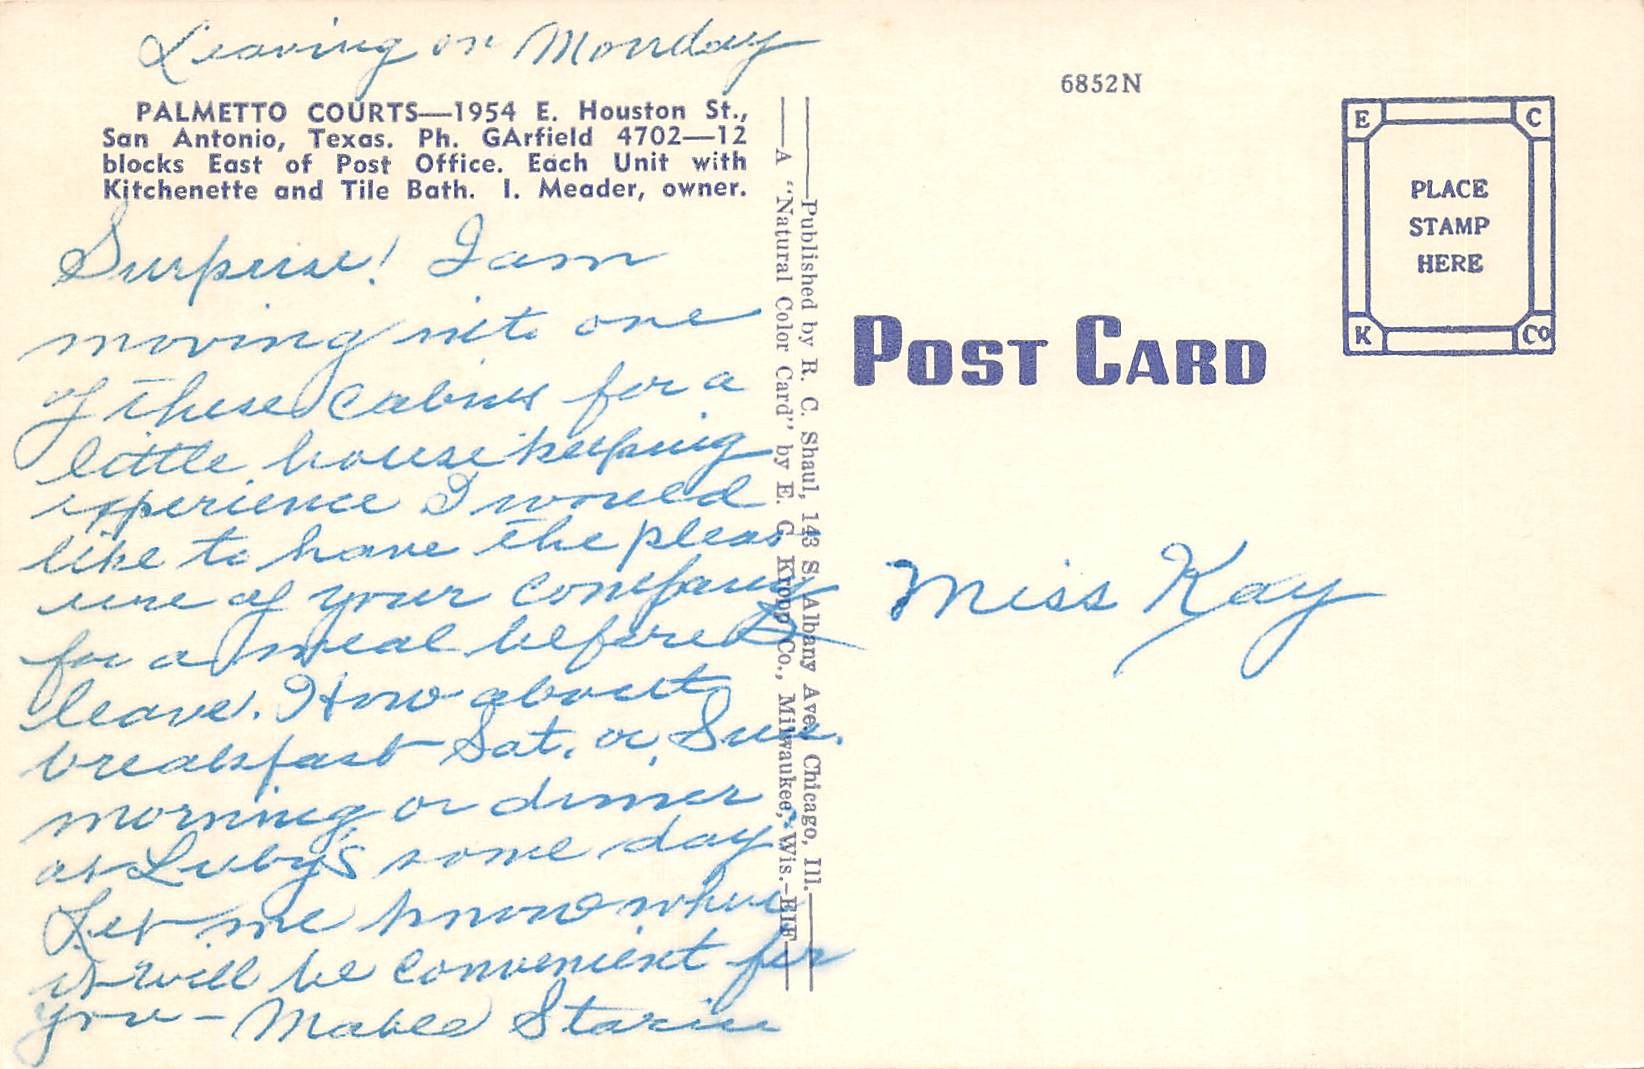 Leaving on Monday
PALMETTO COURTS—1954 E. Houston St.,
San Antonio, Texas. Ph. GArfield 4702—12
blocks East of Post Office. Each Unit with
Kitchenette and Tile Bath. I. Meader, owner.
Surprise! I am
moving into one
of these cabins for a
little housekeeping
experience I would
like to have the pleas
ure of your company
for a meal before I
leave. How about
breakfast Sat. or Sun.
morning or dinner
at Luby's some day
Let me know when
it will be convenient for
you – Mable
A "Natural Color Card" by E. C. Kropp Co., Milwaukee, Wis.-EIF
Published by R. C. Shaul, 143 S. Albany Ave., Chicago, Ill.
6852N
E C
PLACE
STAMP
HERE
K CO
POST CARD
Miss Kay